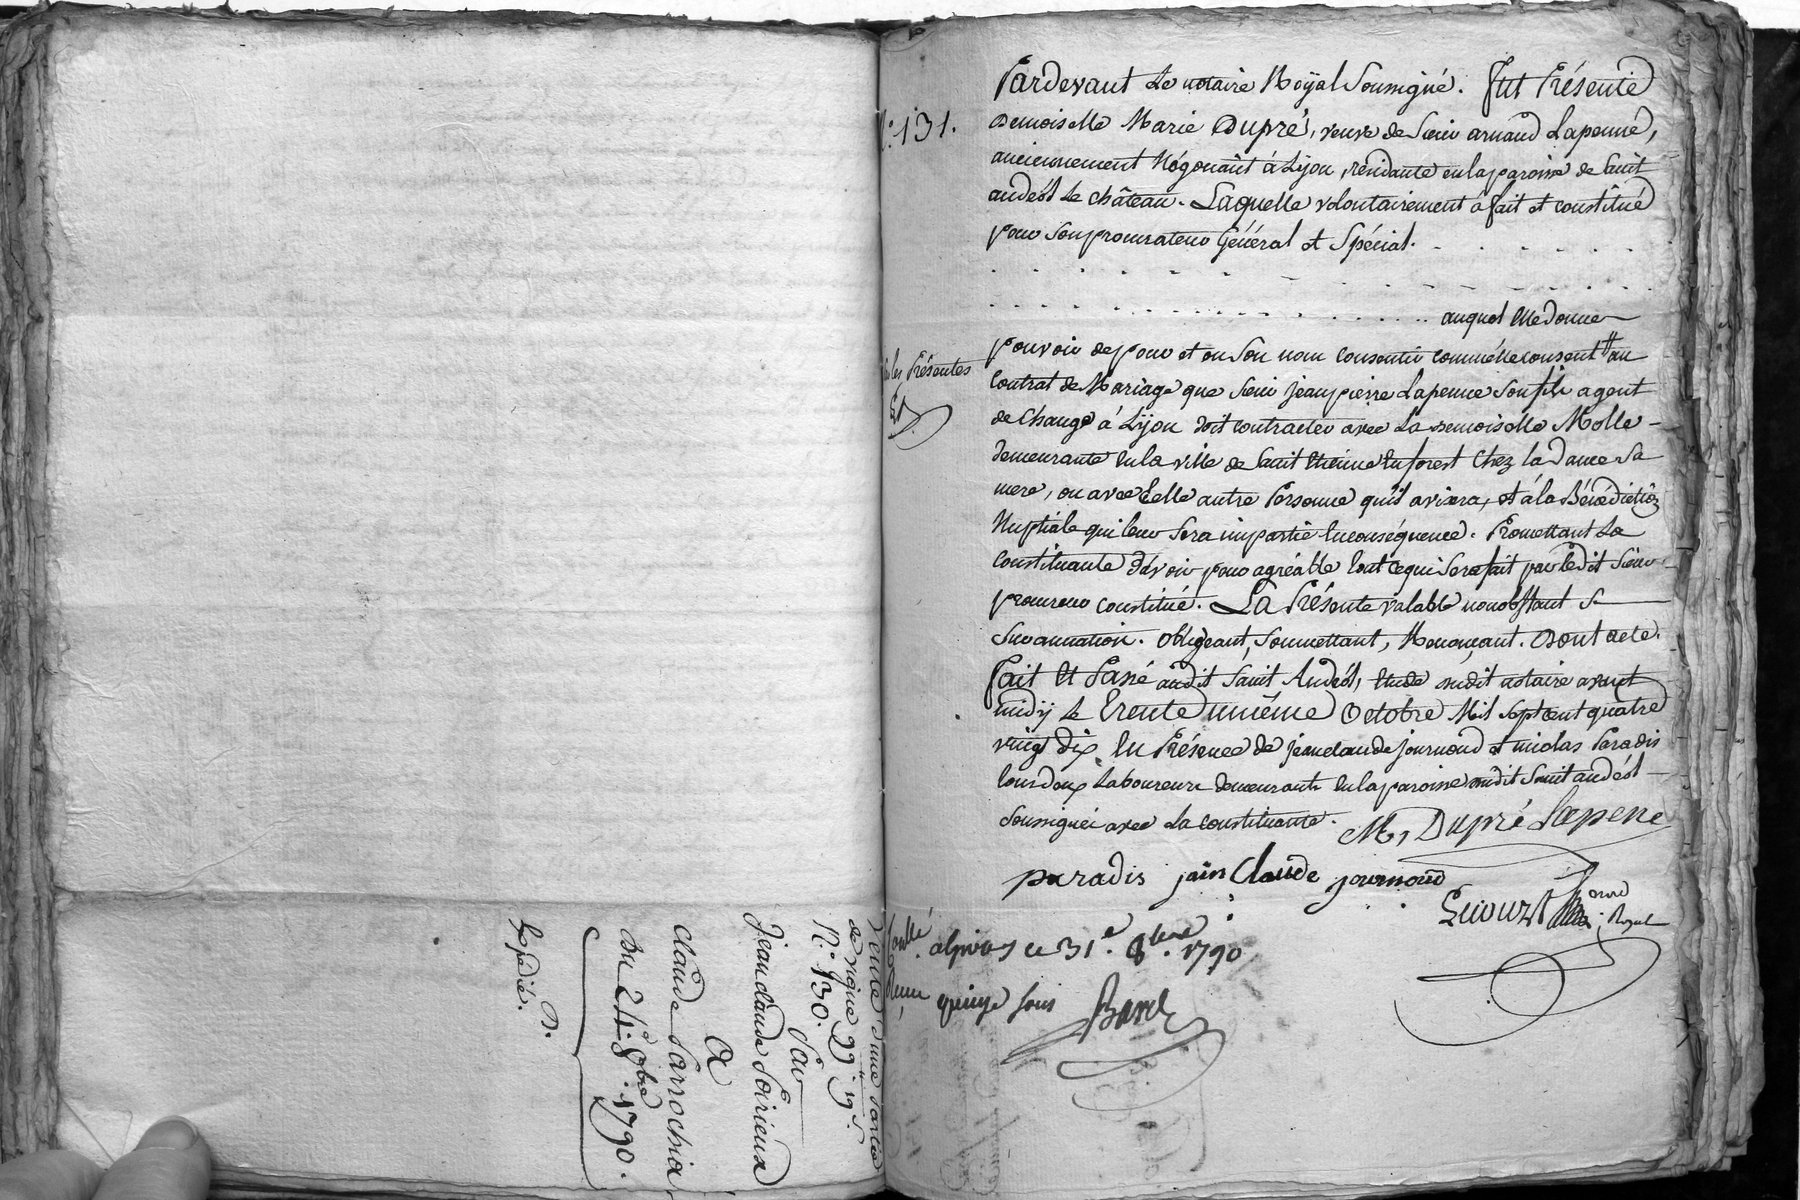 Vente d'une partie
de vigne 99ᵗᵗ 19ˢ
N.º 130. Par
Jean claude Poirieux
A
Claude Parrochia
Du 24.º 8bre 1790.
Expédié.
N.º 131.
Pardevant Le notaire Royal Soussigné. Fut Présente
Demoiselle Marie Dupré, veuve de Sieur arnaud Lapenne,
anciennement Négociant à Lyon, résidante en la paroisse de Saint
andéol Le château. Laquelle volontairement à fait et constitué
pour Son procurateur Général et Spécial.
auquel Elle donne
pouvoir de pour et en Son nom consentir comme elle consent # au
par les Présentes
Contrat de Mariage que Sieur jean pierre Lapenne Son fils agent
de change à Lyon doit contracter avec La demoiselle Molle
demeurante en la ville de Saint Etienne En forest chez la Dame Sa
mere, ou avec telle autre Personne qu'il avisera, et à la Bénédiction
Nuptiale qui leur Sera impartie En conséquence. Promettant La
Constituante d'avoir pour agréable tout ce qui Sera fait par Ledit Sieur
procureur constitué. La Présente valable nonobstant
Surannation. obligeant, Soumettant, Renonçant. Dont acte.
Fait Et Passé audit Saint Andéol, Etude dudit notaire avant
midy le trente unième Octobre Mil Sept cent quatre
vingt dix, En Présence de jean claude journoud et nicolas Paradis
tous deux Laboureurs demeurants en la paroisse dudit Saint andéol
Soussignés avec La constituante. M, Dupré Lapene
paradis jain Claude journoud
Royal
Conllé à givors ce 31.e 8bre. 1790
Reçu quinze Sous